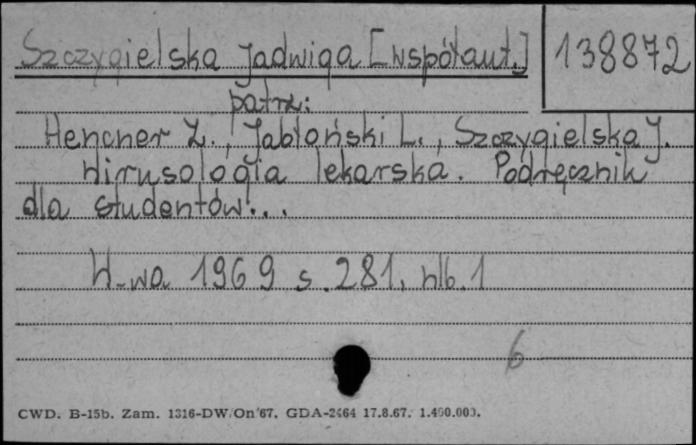 Szczygielska Jadwiga [współaut.]
138872
patrz:
Hencner Z., Jabłoński L., Szczygielska J.
Wirusologia lekarska. Podręcznik
dla studentów...
W-wa 1969 s. 281, nlb. 1
6
CWD. B-15b. Zam. 1316-DW/On/67. GDA-2464 17.8.67. 1.400.000.